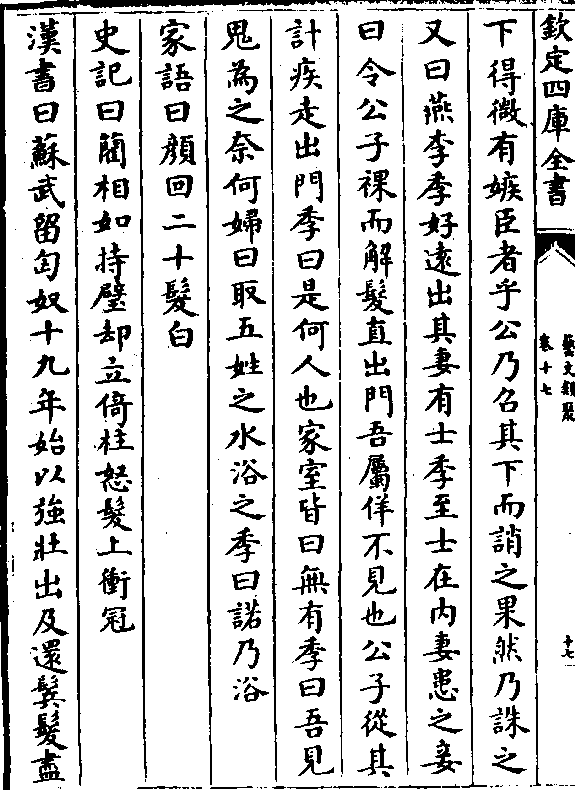 欽定四庫全書
藝文類聚
卷十七
十七
下得微有嫉臣者乎公乃召其下而誚之果然乃誅之
又曰燕李季好遠出其妻有士季至士在内妻患之妾
曰令公子裸而解髮直出門吾屬佯不見也公子從其
計疾走出門季曰是何人也家室皆曰無有季曰吾見
鬼為之奈何婦曰取五姓之水浴之季曰諾乃浴
家語曰顔回二十髮白
史記曰藺相如持璧却立倚柱怒髮上衝冠
漢書曰蘇武留匈奴十九年始以強壯出及還鬚髮盡